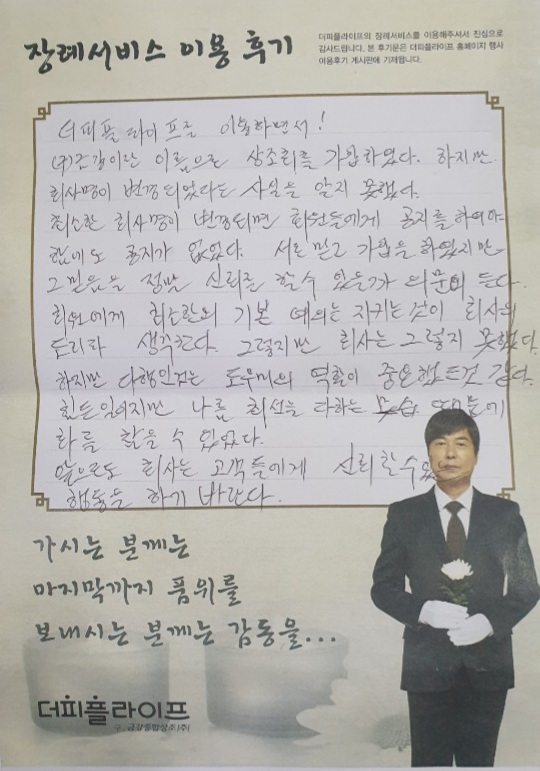 장례서비스 이용 후기
더피플라이프의 장례서비스를 이용해주셔서 진심으로
감사드립니다. 본 후기문은 더피플라이프 홈페이지 행사
이용후기 게시판에 기재됩니다.
더피플라이프를 이용하면서!
(주)금강이란 이름으로 상조회를 가입하였다. 하지만
회사명이 변경되었다는 사실을 알지 못했다.
최소한 회사명이 변경되면 회원들에게 공지를 하여야
함에도 공지가 없었다. 서로 믿고 가입을 하였지만
그 믿음을 정말 신뢰를 할수 있을가 의문이 든다.
회원에게 최소한의 기본 예의는 지키는것이 회사의
도리라 생각한다. 그렇지만 회사는 그렇지 못했다.
하지만 다행인것은 도우미의 역할이 중요했든것 같다.
힘든일이지만 나름 최선을 다하는 모습 때문에
화를 참을 수 있었다.
앞으로도 회사는 고객들에게 신뢰할수있
행동을 하기 바란다.
가시는 분께는
마지막까지 품위를
보내시는 분께는 감동을...
더피플라이프
구. 금강종합상조(주)